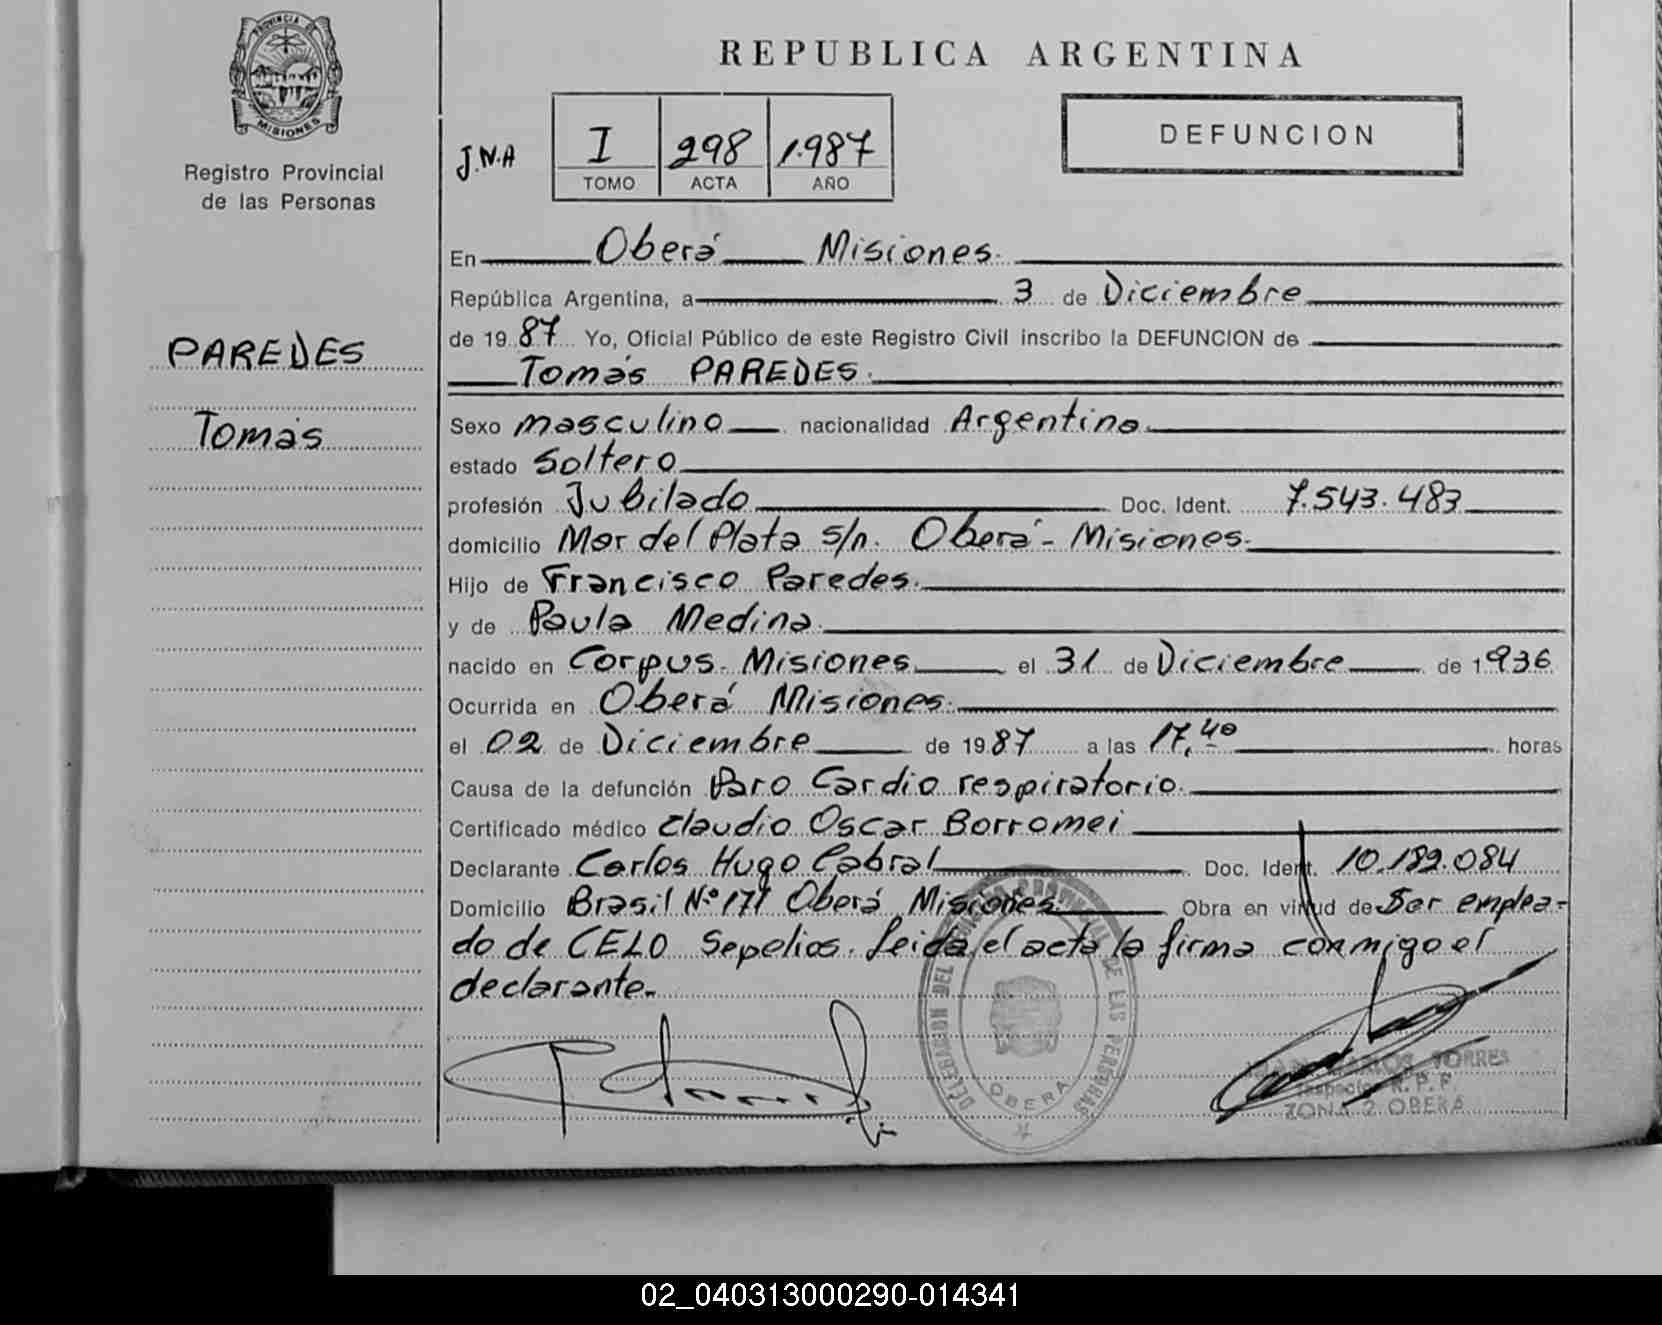 PROVINCIA DE
MISIONES
Registro Provincial
de las Personas
PAREDES
Tomás
REPUBLICA ARGENTINA
J.N.A
I 298 1.987
TOMO ACTA AÑO
DEFUNCION
En Oberá Misiones.
República Argentina, a 3 de Diciembre
de 19 87 Yo, Oficial Público de este Registro Civil inscribo la DEFUNCION de
Tomás PAREDES.
Sexo masculino nacionalidad Argentina.
estado Soltero
profesión Jubilado Doc. Ident. 7.543.483
domicilio Mar del Plata s/n. Oberá - Misiones.
Hijo de Francisco Paredes.
y de Paula Medina.
nacido en Corpus. Misiones. el 31 de Diciembre de 1936
Ocurrida en Oberá Misiones.
el 02 de Diciembre de 1987 a las 17,40 horas
Causa de la defunción Paro Cardio respiratorio.
Certificado médico Claudio Oscar Borromei
Declarante Carlos Hugo Cabral Doc. Ident. 10.189.084
Domicilio Brasil Nº 171 Oberá Misiones Obra en virtud de Ser emplea-
do de CELO Sepelios. Leida el acta la firma conmigo el
declarante.
DELEGACION DEL REGISTRO PROVINCIAL DE LAS PERSONAS
OBERA
JUAN CARLOS TORRES
Inspector R. P. P.
ZONA 2 OBERA
02_040313000290-014341